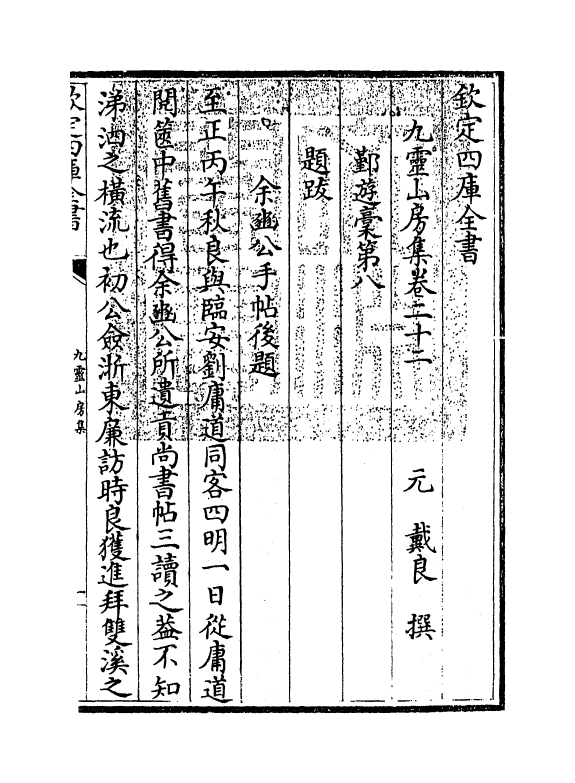 欽定四庫全書
九靈山房集卷二十二　元　戴良　撰
鄞遊藳第八
題跋
余豳公手帖後題
至正丙午秋良與臨安劉庸道同客四明一日從庸道
閱篋中舊書得余豳公所遺貢尚書帖三讀之葢不知
涕洒之橫流也初公僉浙東廉訪時良獲進拜雙溪之
欽定四庫全書
九靈山房集
一